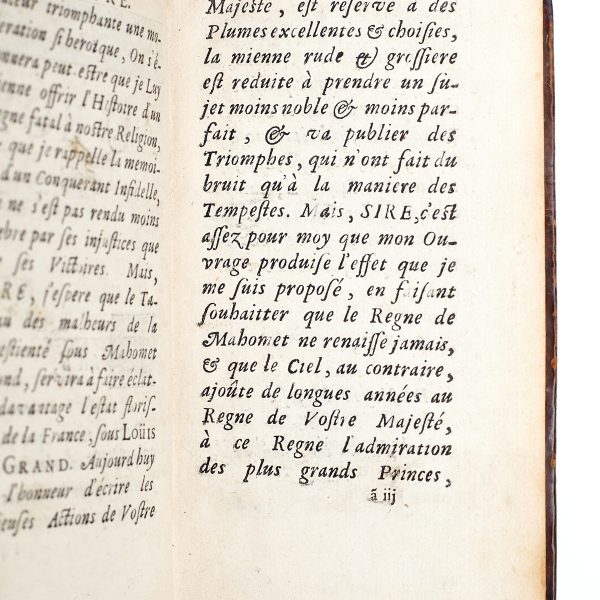 RE.
teur triomphante une mo-
eration si heroïque, On s'é-
onnera peut estre que je Luy
ienne offrir l'Histoire d'un
gne fatal à nostre Religion,
que je rappelle la memoi-
d'un Conquerant Infidelle,
ne s'est pas rendu moins
ebre par ses injustices que
ses Victoires. Mais,
RE, j'espere que le Ta-
au des malheurs de la
estienté sous Mahomet
ond, servira à faire éclat-
davantage l'estat floris-
de la France, sous Loüis
GRAND. Aujourd'huy
l'honneur d'écrire les
ieuses Actions de Vostre
Majesté, est reservé à des
Plumes excellentes & choisies,
la mienne rude & grossiere
est reduite à prendre un su-
jet moins noble & moins par-
fait, & va publier des
Triomphes, qui n'ont fait du
bruit qu'à la maniere des
Tempestes. Mais, SIRE, c'est
assez pour moy que mon Ou-
vrage produise l'effet que je
me suis proposé, en faisant
souhaitter que le Regne de
Mahomet ne renaisse jamais,
& que le Ciel, au contraire,
ajoûte de longues années au
Regne de Vostre Majesté,
à ce Regne l'admiration
des plus grands Princes,
ã iij